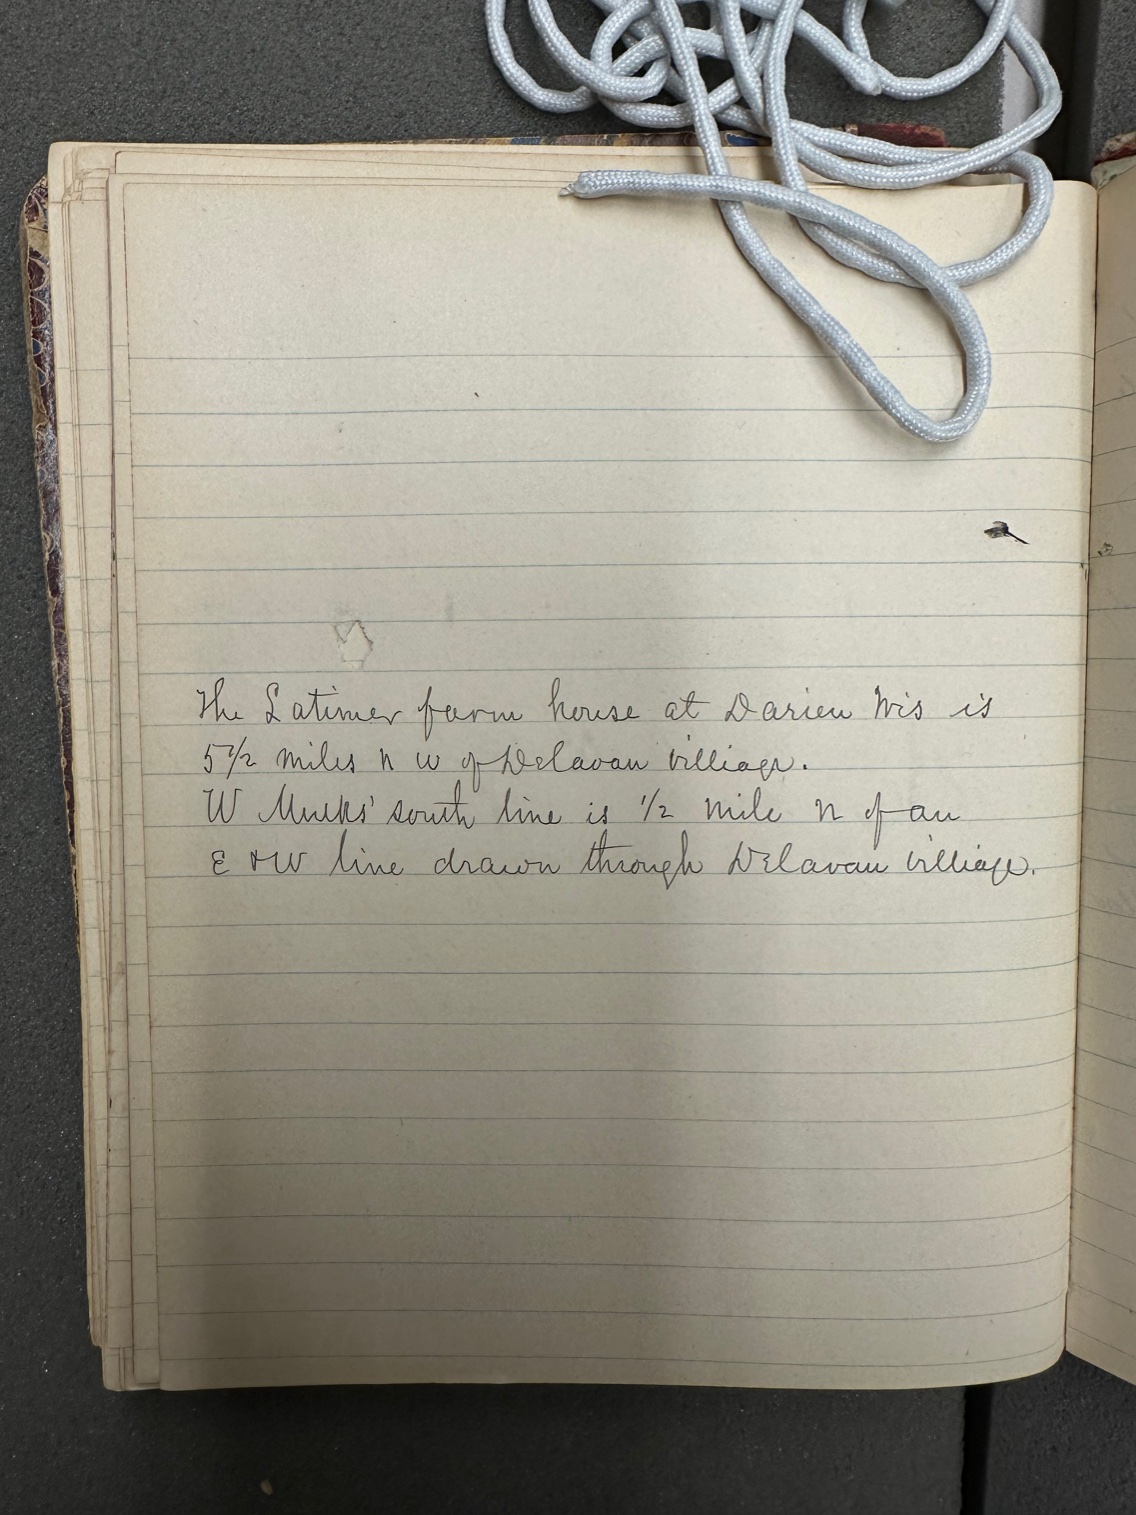 The Latimer farm house at Darien Wis is
5 1/2 miles n w of Delavan villiage.
W south line is 1/2 mile n of an
E & W line drawn through Delavan villiage.